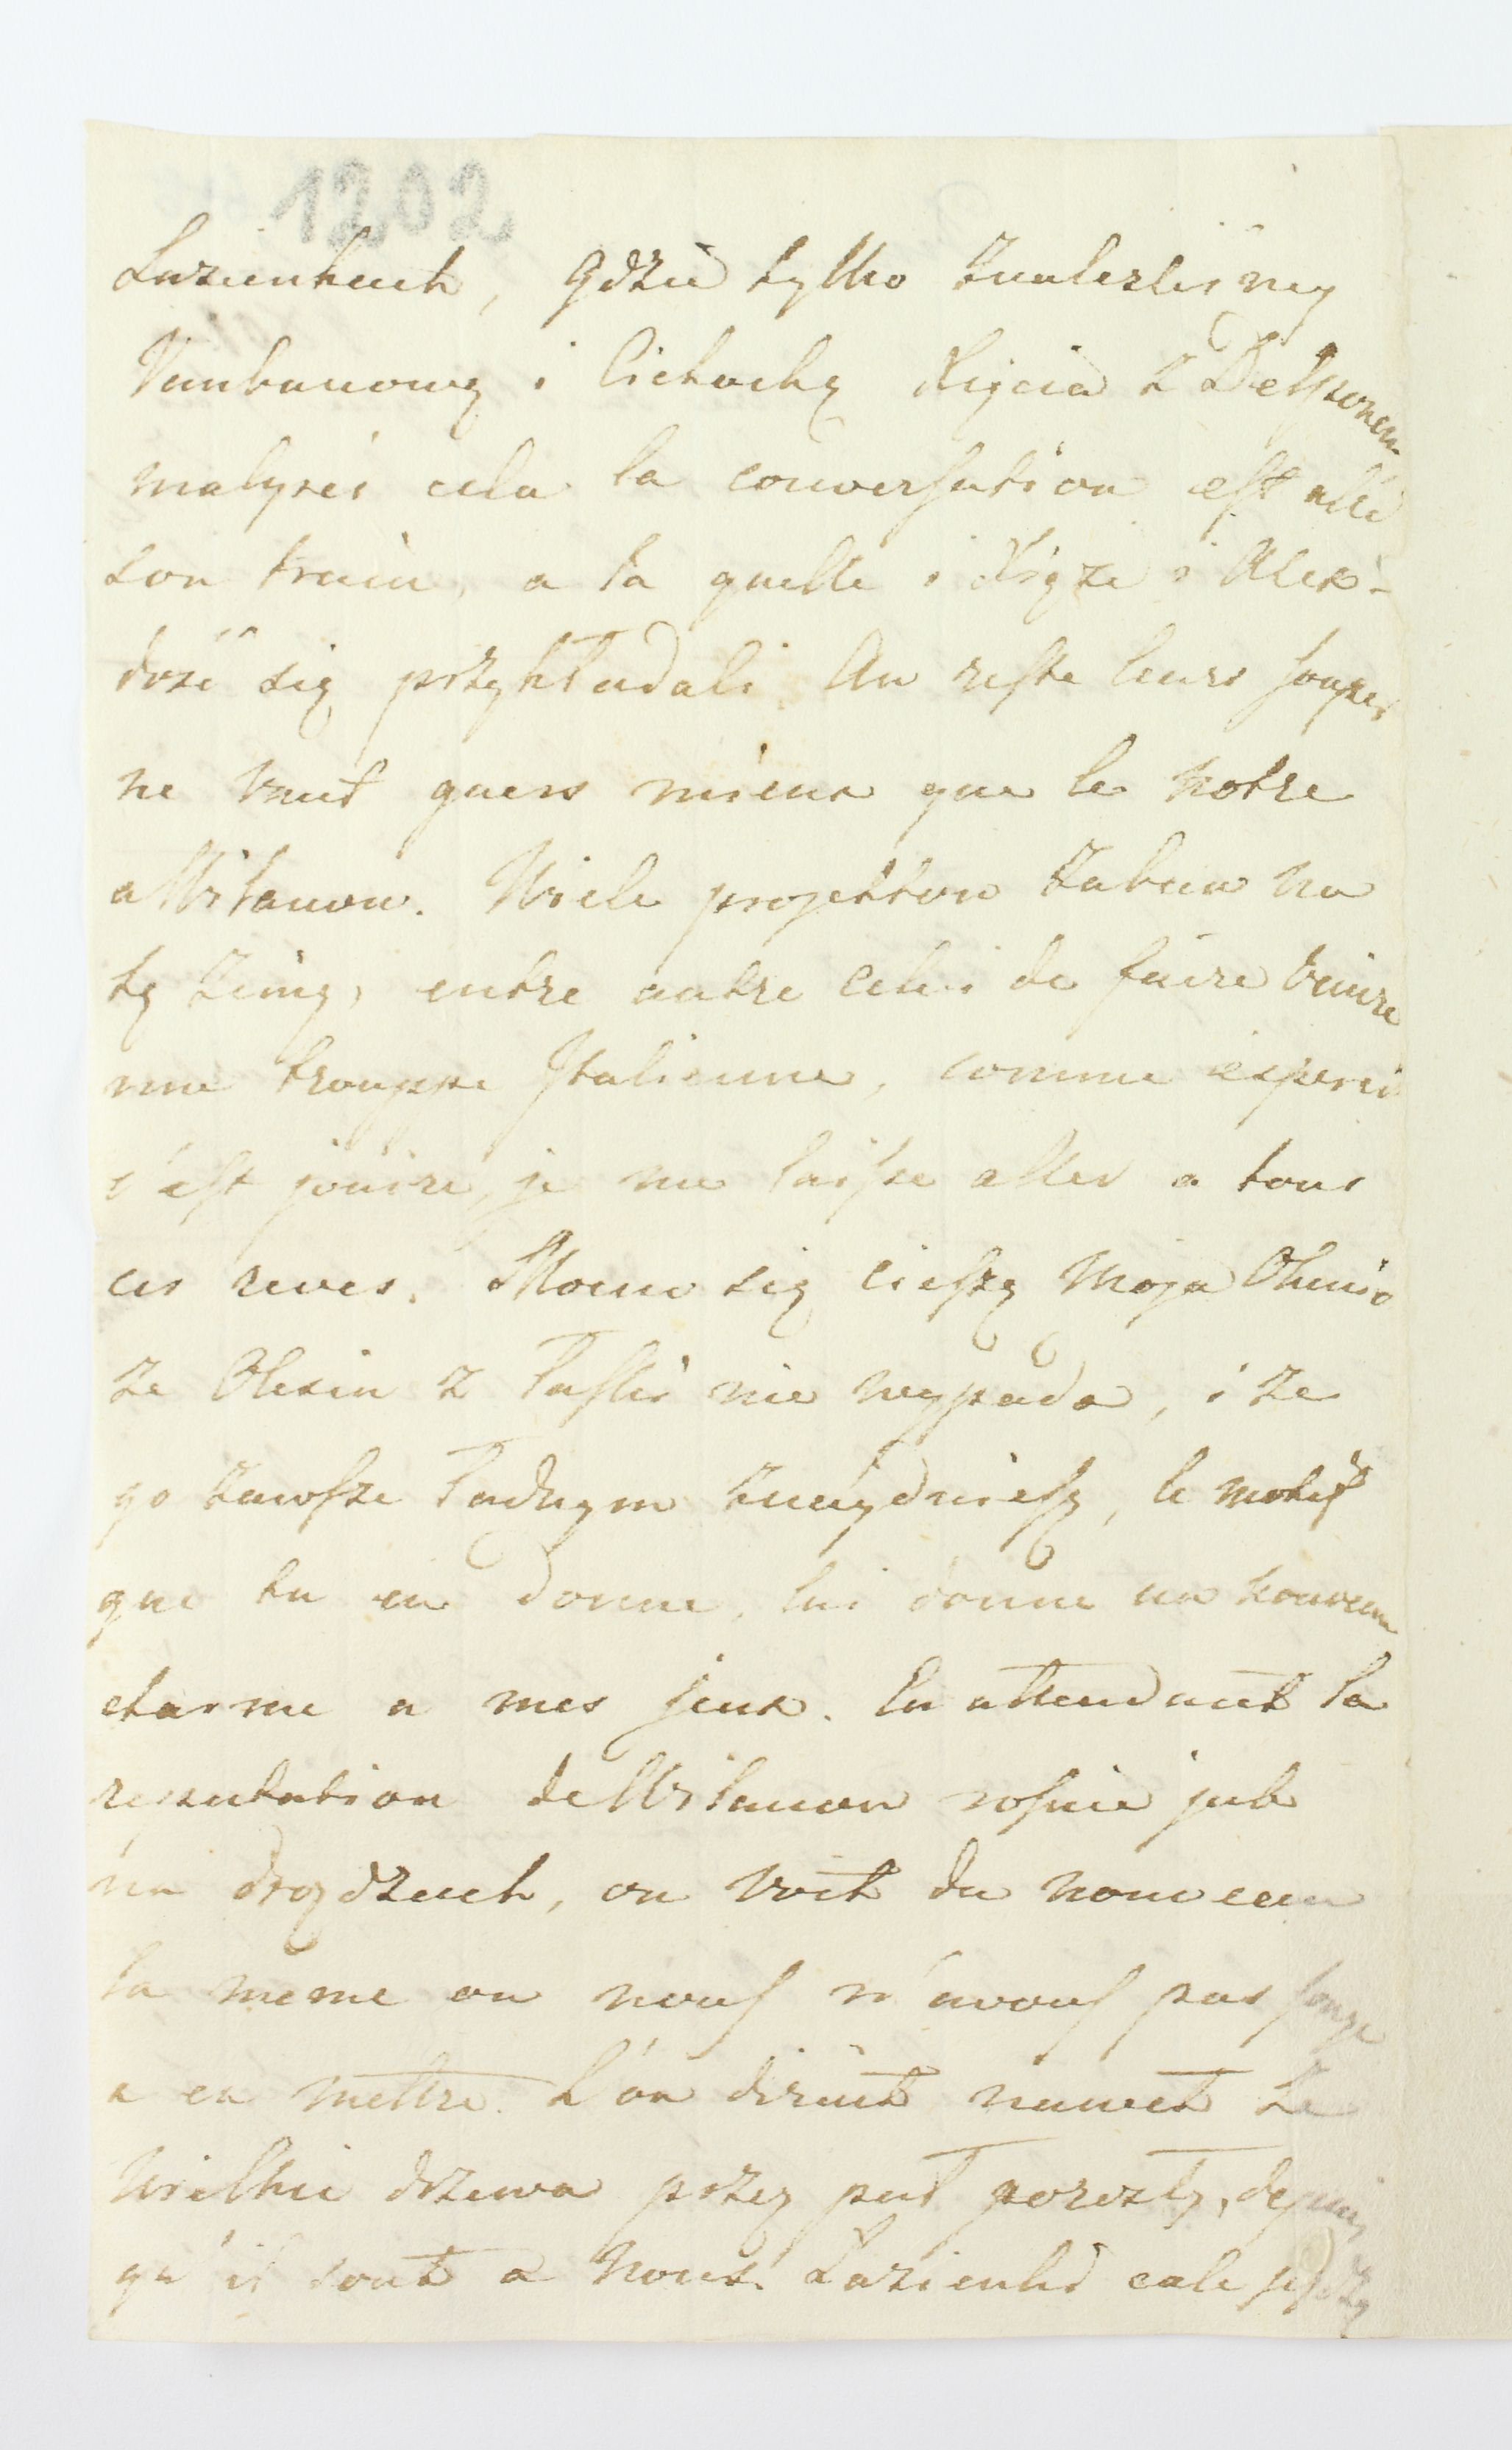 1202
Lazienkach, gdzie tylko znalezlismy
Vanbanową i Cichocką Xięcia z Delssonem
malgrèi cela la conversation est allé
son train, a la quelle i Xiąże i Alex-
dość się przykładali. Au reste leurs souper
ne vaut guers mieux que le notre
a Wilanow. Wiele projektow zabaw na
tą zimę, entre autre celui de faire venire
une trouppe Italienne, comme esperer
c'est jouire, je me laisse aller a tous
ces reves. Mocno się cieszę Moja Olesiu
ze Olesin z łaski nie wypada, i ze
go zawsze ładnym znaydziesz, le motif
que tu en donne, lui donne un nouveau
charme a mes jeux. En attendant la
reputation de Wilanow rosnie jak
na drozdzach, on voit du nouveau
la meme ou nous n'avons pas songe
a en mettre. L'on dirait nawet ze
Wielkie drzewa przez puł porosły, depuis
qu'il sont a nous. Lazienki cale